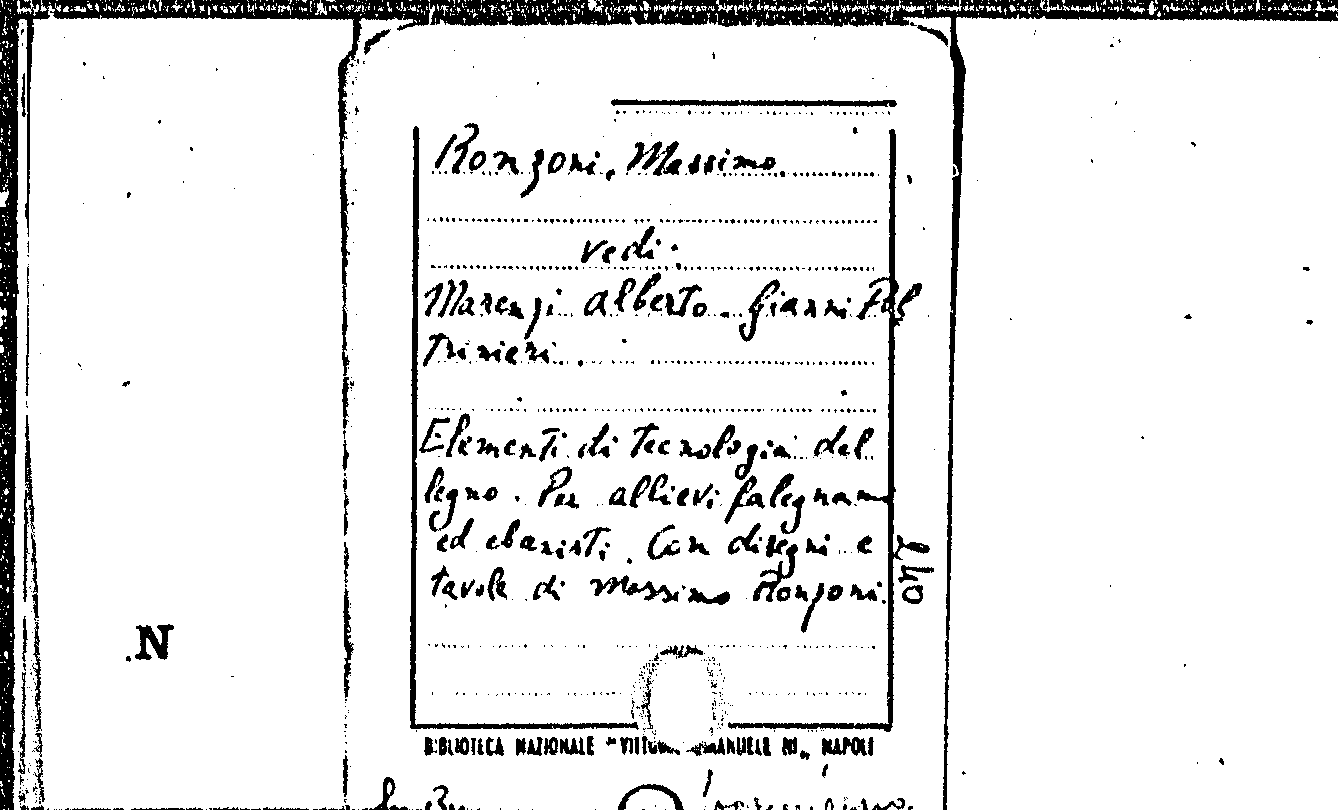 Ronzoni, Massimo.
vedi:
Marenzi Alberto. Gianni Pol
trinieri.
Elementi di tecnologia del
legno. Per allievi falegnami
ed ebanisti. Con disegni e
tavole di Massimo Ronzoni.
BIBLIOTECA NAZIONALE "VITTORIO EMANUELE III„ NAPOLI
.N